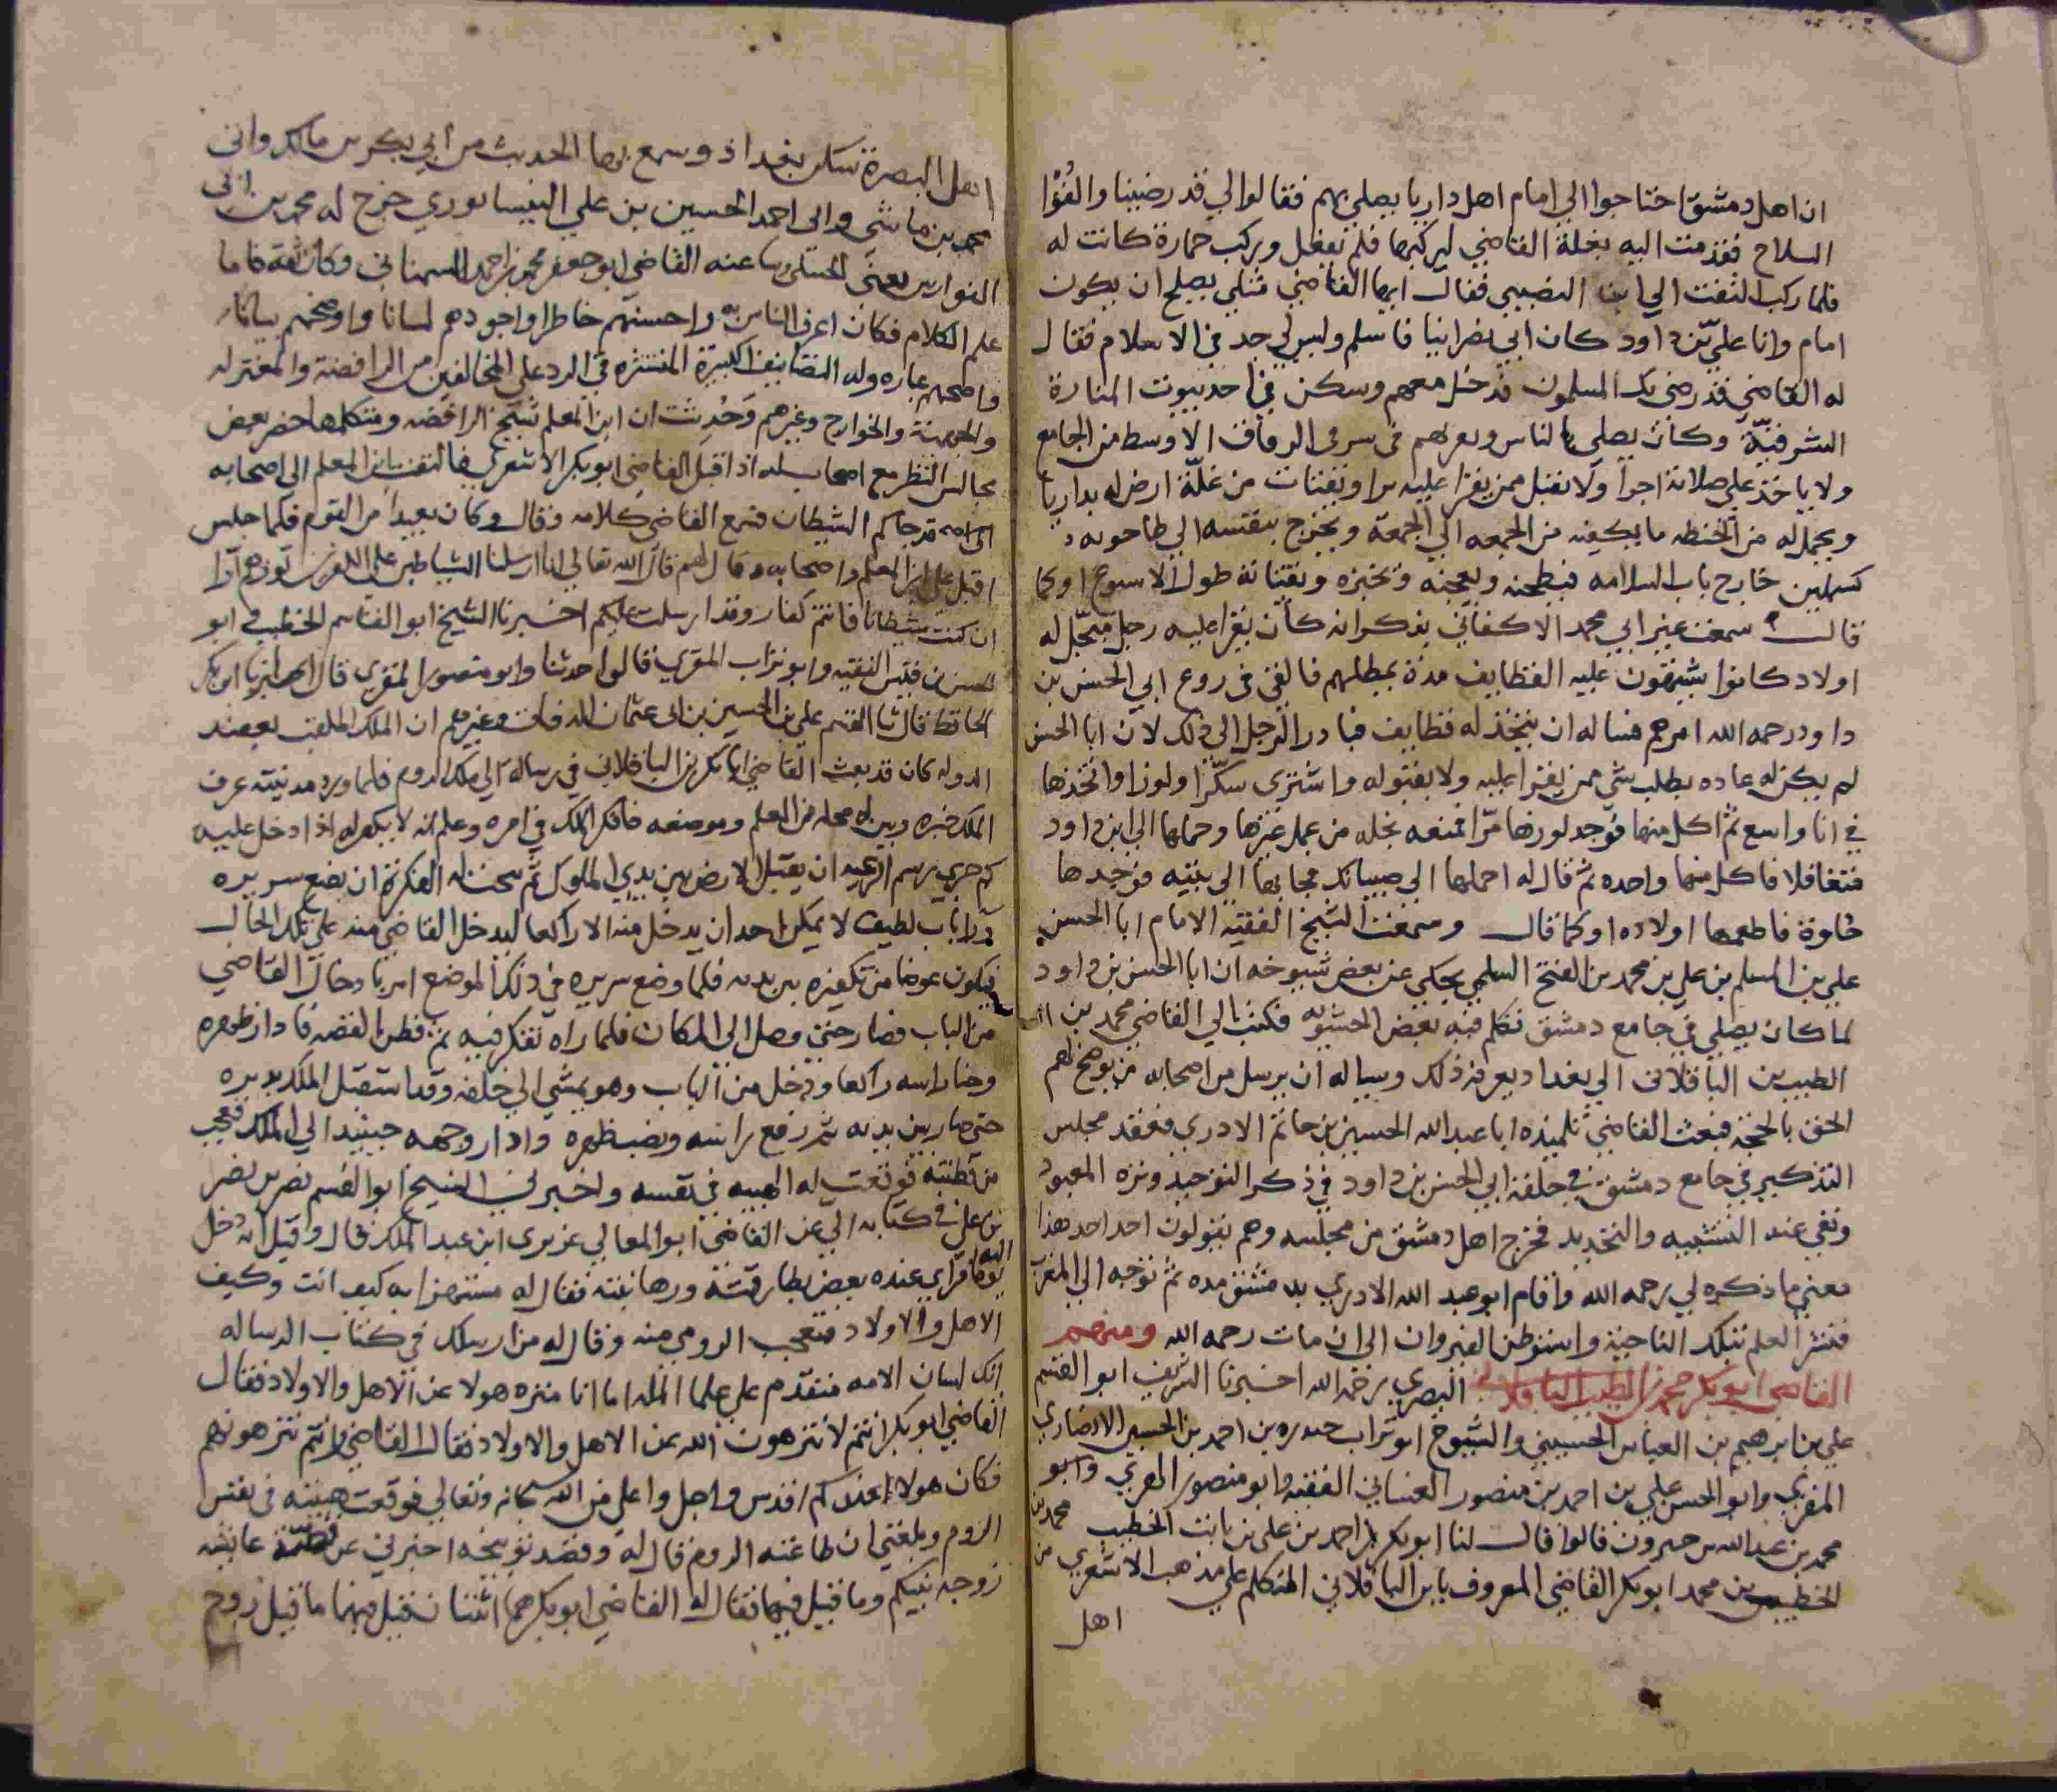 ان اهل دمشق احتاجوا الي امام اهل داريا يصلي بهم فقالوا لي قد رضينا والقوا
السلاح فقدمت اليه بغلة القاضي ليركبها فلم يفعل وركب حمارة كانت له
فلما ركب التفت الي ابن النصيبي فقال ايها القاضي مثلي يصلح ان يكون
امام وانا علي بن داود كان ابي نصرانيا فاسلم وليس لي جد في الاسلام فقال
له القاضي قد رضي بك المسلمون فدخل معهم وسكن في احد بيوت المنارة
الشرقية وكان يصلي بالناس ويقريهم في شرقي الرواق الاوسط من الجامع
ولا ياخذ علي صلاته اجرا ولا يقبل ممن يقرا عليه برا ويقتات من غلة ارض له بداريا
ويحمل له من الحنطه ما يكفيه من الجمعه الي الجمعة ويخرج بنفسه الي طاحونه
كسملين خارج باب السلامه فيطحنه ويعجنه ويخبزه ويقتاته طول الاسبوع او كما
قال سمعت غير ابي محمد الاكفاني يذكر انه كان يقرا عليه رجل مبجل له
اولاد كانوا يشتهون عليه القطايف مدة يمطلهم فالقي في روع ابي الحسن بن
داود رحمه الله امرهم فساله ان يتخذ له قطايف فبادر الرجل الي ذلك لان ابا الحسن
لم يكن له عاده بطلب شي ممن يقرا عليه ولا بقبوله واشتري سكرا ولوزا واتخذها
في انا واسع ثم اكل منها فوجد لوزها مرا فمنعه بخله من عمل غيرها وحملها الي ابن داود
فتغافلا فاكل منها واحده ثم قال له احملها الي صبيانك فجا بها الي بيته فوجدها
حلوة فاطعمها اولاده او كما قال وسمعت الشيخ الفقيه الامام ابا الحسن
علي بن المسلم بن علي بن محمد بن الفتح السلمي يحكي عن بعض شيوخه ان ابا الحسن بن داود
لما كان يصلي في جامع دمشق تكلم فيه بعض الحشويه فكتب الي القاضي محمد بن
الطيب بن الباقلاني الي بغداد يعرفه ذلك ويساله ان يرسل من اصحابه من يوضح لهم
الحق بالحجة فبعث القاضي تلميذه ابا عبد الله الحسين بن حاتم الاذري فعقد مجلس
التذكير في جامع دمشق في حلقة ابي الحسن بن داود في ذكر التوحيد ونزه المعبود
ونفي عنه التشبيه والتحديد فخرج اهل دمشق من مجلسه وهم يقولون احد احد هذا
معني ما ذكره لي رحمه الله واقام ابو عبد الله الاذري بدمشق مده ثم توجه الي المغرب
فنشر العلم بتلك الناحية واستوطن القيروان الي ان مات رحمه الله ومنهم
القاضي ابو بكر محمد بن الطيب الباقلاني البصري رحمه الله اخبرنا الشريف ابو القسم
علي بن ابرهيم بن العباس الحسيني والشيوخ ابو تراب حيدره بن احمد بن الحسين الانصاري
المقري وابو الحسن علي بن احمد بن منصور الغساني الفقيه وابو منصور المقري وابو
محمد بن عبد الله بن حمرون قالوا قال لنا ابو بكر احمد بن علي بن ثابت الخطيب محمد بن
الخطيب بن محمد ابو بكر القاضي المعروف بابن الباقلاني المتكلم علي مذهب الاشعري من
اهل
اهل البصرة سكن بغداد وسمع بها الحديث من ابي بكر بن مالك وابي
محمد بن ماشي وابي احمد الحسين بن علي النيسابوري خرج له محمد بن ابي
الفوارس عنه القاضي ابو جعفر محمد بن احمد السمناني وكان ثقة فاما
علم الكلام فكان اعرف الناس به واحسنهم خاطرا واجودهم لسانا واوضحهم بيانا
واصحهم عباره وله التصانيف الكثيرة المنتشره في الرد علي المخالفين من الرافضة والمعتزله
والجهمية والخوارج وغيرهم وحدثت ان ابن المعلم شيخ الرافضه ومتكلمها حضر بعض
مجالس النظر مع اصحاب له اذ اقبل القاضي ابو بكر الاشعري فالتفت ابن المعلم الي اصحابه
قد جاكم الشيطان فسمع القاضي كلامه وكان بعيدا من القوم فلما جلس
اقبل علي ابن المعلم واصحابه وقال لهم قال الله تعالي انا ارسلنا الشياطين علي الكافرين تؤزهم ازا
ان كنت شيطانا فانتم كفار وقد ارسلت عليكم اخبرنا الشيخ ابو القاسم الخطيب ابو
الحسن بن قبيس الفقيه وابو تراب المقري قالوا حدثنا وابو منصور المقري قال انبا ابو بكر
الحافظ قال ثنا القسم علي بن الحسن بن ابي عثمان الدقاق وغيره ان الملك الملقب بعضد
الدوله كان قد بعث القاضي ابا بكر بن الباقلاني في رسالة الي ملك الروم فلما ورد مدينته عرف
الملك خبره وبين له محله من العلم وموضعه فافكر الملك في امره وعلم انه لا يكفر له اذا دخل عليه
كما جري رسم الرعيه ان يقبل الارض بين يدي الملوك ثم نتجت له الفكرة ان يضع سريره
ورا باب لطيف لا يمكن احد ان يدخل منه الا راكعا ليدخل القاضي منه علي تلك الحال
فيكون عوضا من تكفيره بين يديه فلما وضع سريره في ذلك الموضع امر بادخال القاضي
من الباب فصار حتي وصل الي المكان فلما راه تفكر فيه ثم فطن بالقصه فادار ظهره
وحنا راسه راكعا ودخل من الباب وهو يمشي الي خلفه وقد استقبل الملك بدبره
حتي صار بين يديه ثم رفع راسه ونصب ظهره وادار وجهه حينيذ الي الملك فعجب
من فطنته فوقعت له الهيبه في نفسه واخبرني الشيخ ابو القسم نصر بن نصر
بن علي في كتابه الي عن القاضي ابو المعالي عزيزي ابن عبد الملك قال وقيل انه دخل
يوما فراي عنده بعض بطارقته ورهابنته فقال له مستهزيا به كيف انت وكيف
الاهل والاولاد فتعجب الرومي منه وقال له من ارسلك في كتاب الرساله
انك لسان الامه متقدم علي علما المله اما انا متنزه هولا عن الاهل والاولاد فقال
القاضي ابو بكر انتم لا تنزهون الله عن الاهل والاولاد فقال القاضي وانتم تنزهونهم
فكان هولا عندكم اقدس واجل واعلي من الله سبحانه وتعالي فوقعت هيبته في نفس
الروم وبلغني ان طاغية الروم قال له وقصد توبيخه اخبرني عن قصة عايشه
زوجة نبيكم وما قيل فيها فقال له القاضي ابو بكر هما اثنتان قيل فيهما ما قيل زوج